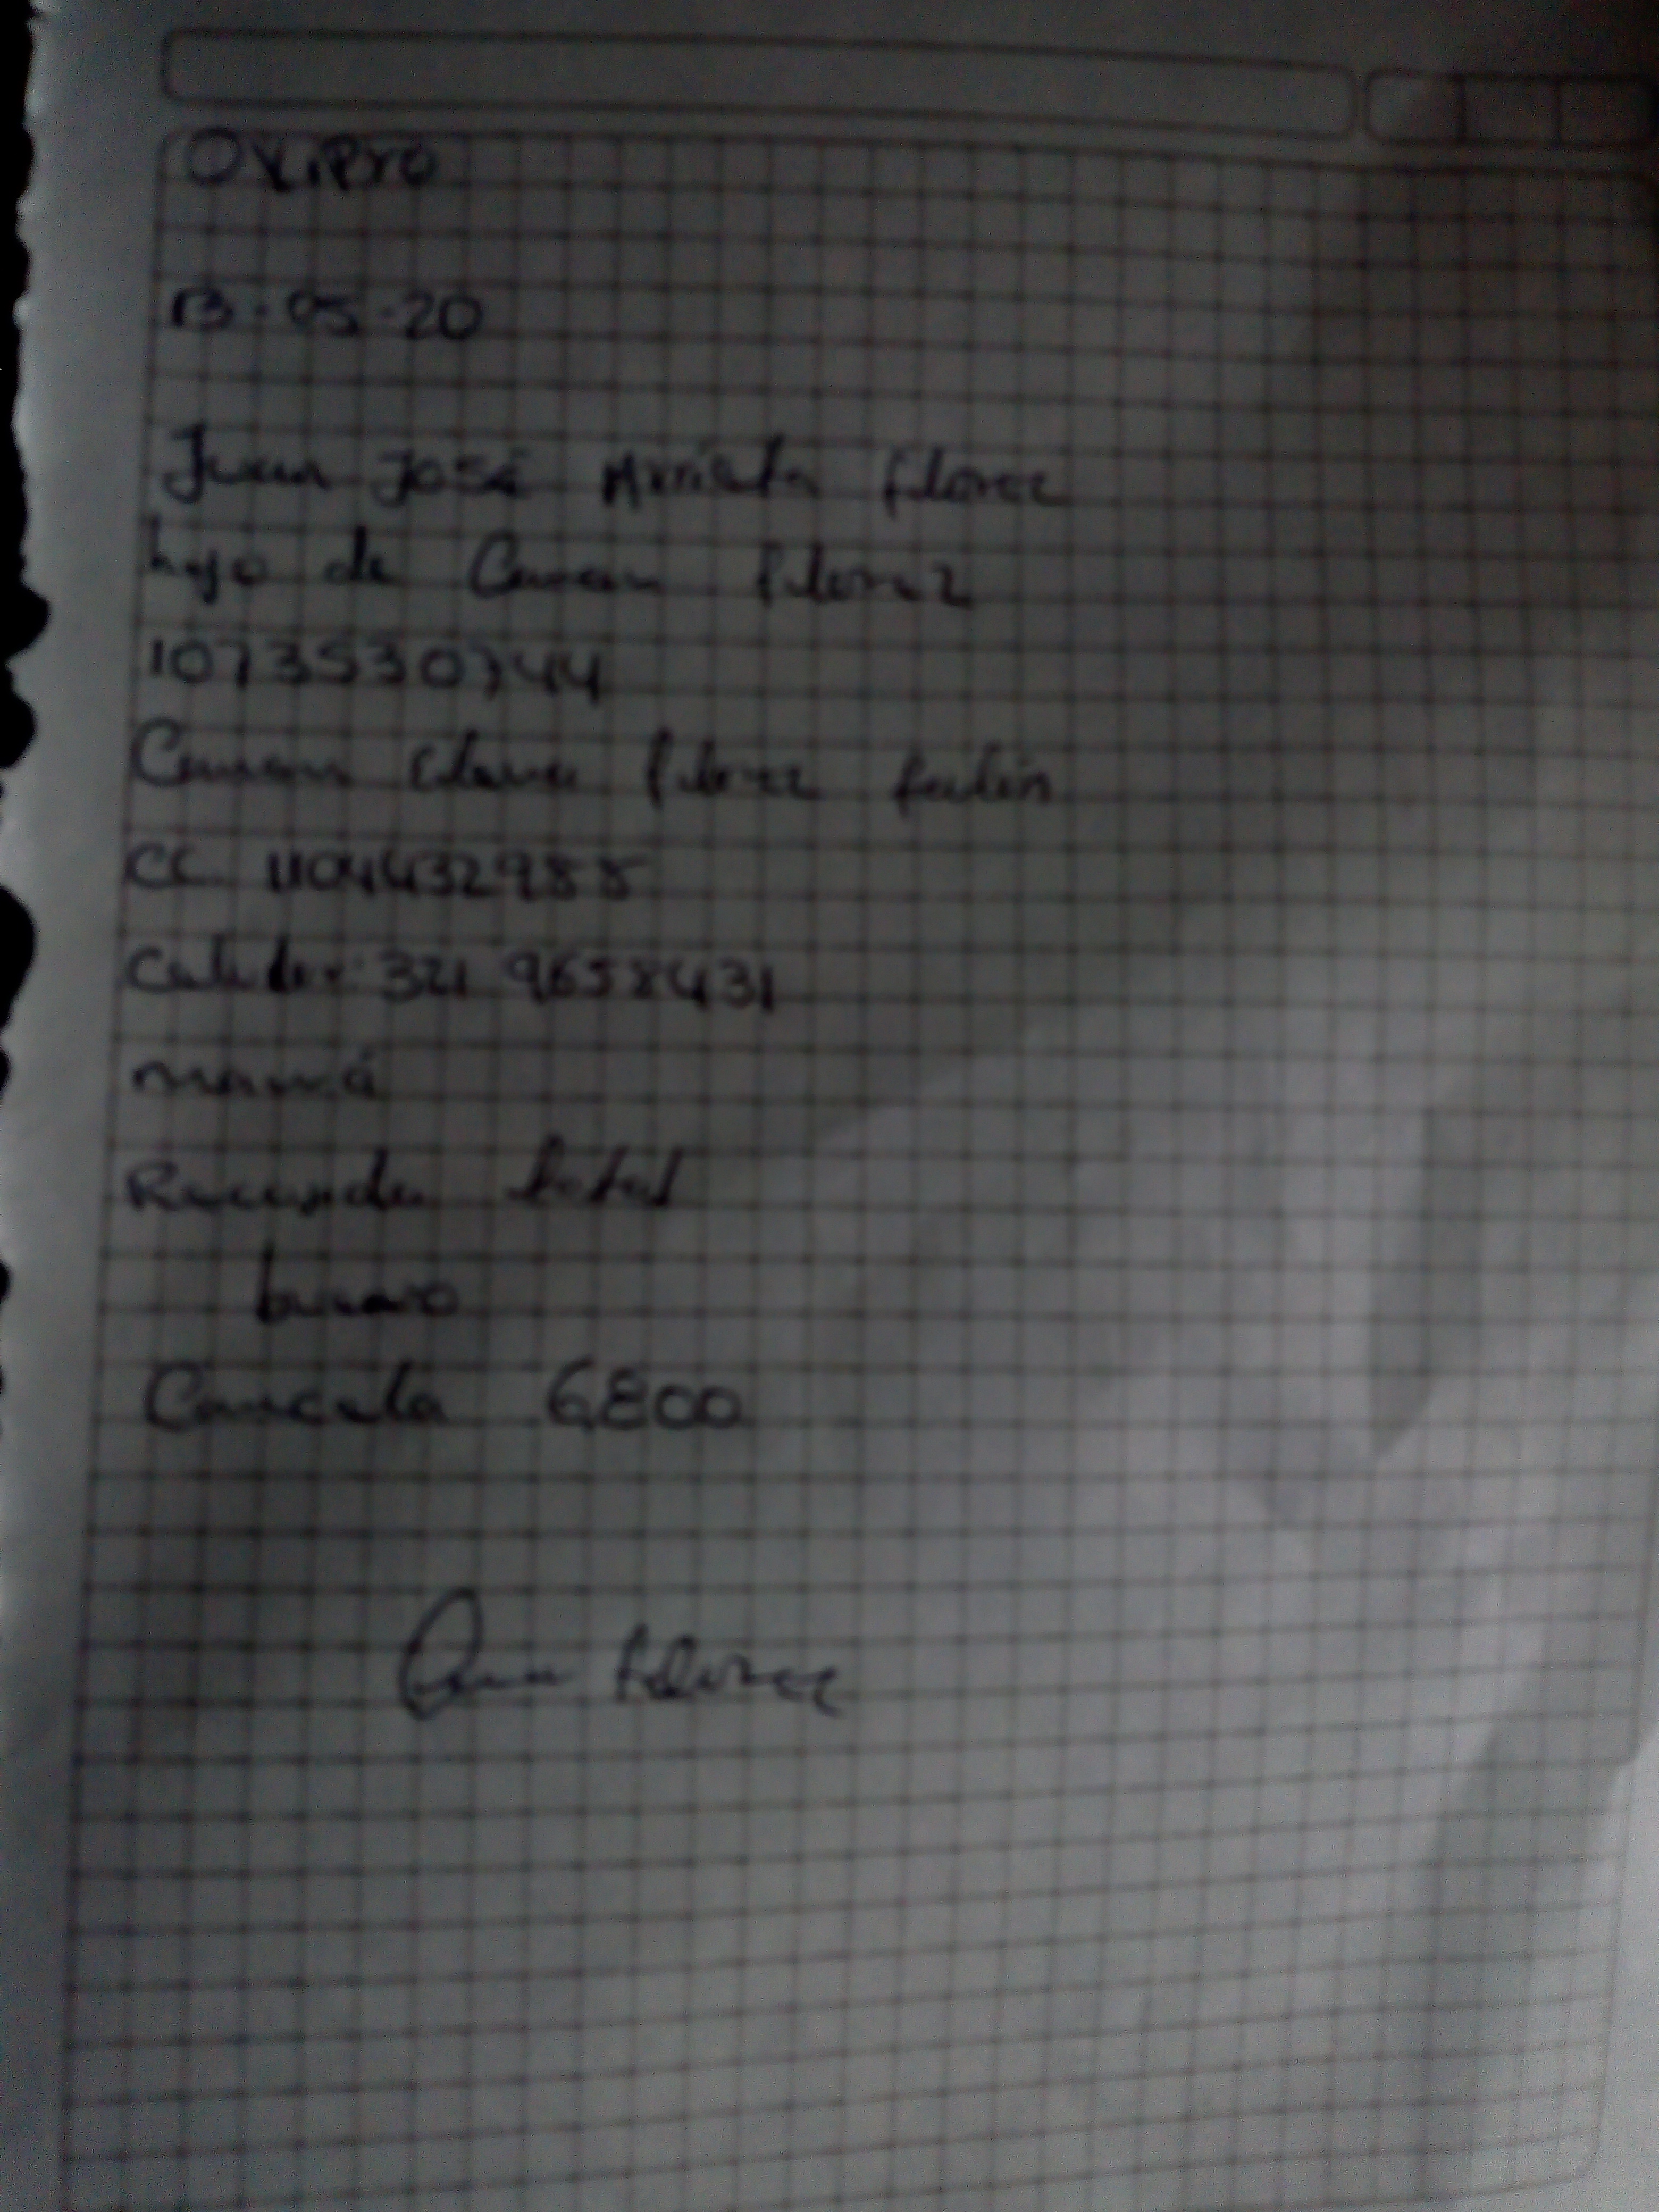 OXIPro
13-05-20
Juan José Arrieta florez
hijo de Carmen florez
1073530744
Carmen florez
CC 1104432988
Celular: 321 9658431
mamá
total
Cancela 6,800
florez